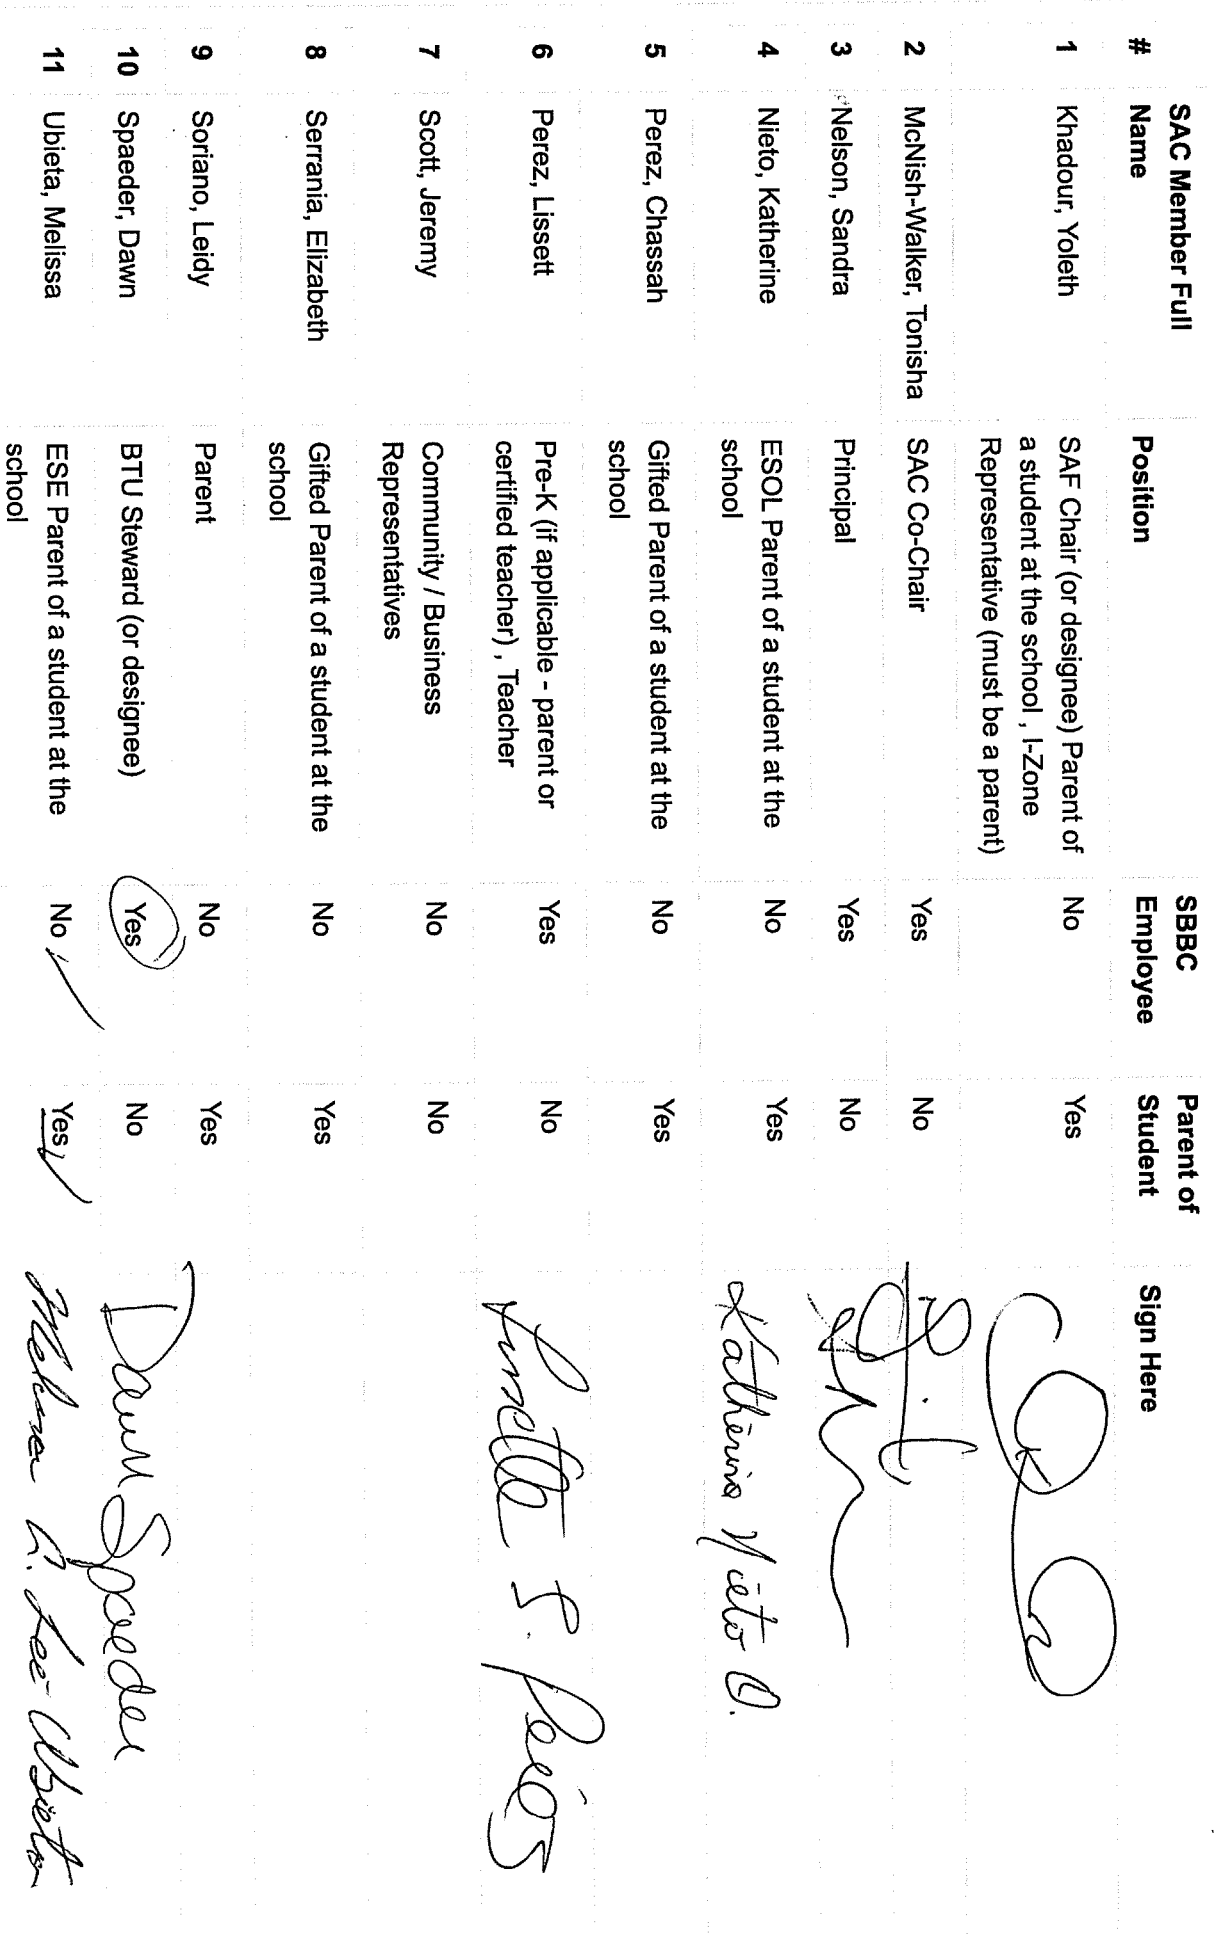 SAC Member Full
# Name Position SBBC Employee Parent of Student Sign Here
1 Khadour, Yoleth SAF Chair (or designee) Parent of No Yes
a student at the school , I-Zone
Representative (must be a parent)
2 McNish-Walker, Tonisha SAC Co-Chair Yes No
3 Nelson, Sandra Principal Yes No
4 Nieto, Katherine ESOL Parent of a student at the No Yes Katherine Nieto O.
school
5 Perez, Chassah Gifted Parent of a student at the No Yes
school
6 Perez, Lissett Pre-K (if applicable - parent or Yes No
certified teacher) , Teacher
7 Scott, Jeremy Community / Business No No
Representatives
8 Serrania, Elizabeth Gifted Parent of a student at the No Yes
school
9 Soriano, Leidy Parent No Yes
10 Spaeder, Dawn BTU Steward (or designee) Yes No Dawn Spaeder
11 Ubieta, Melissa ESE Parent of a student at the No Yes
school